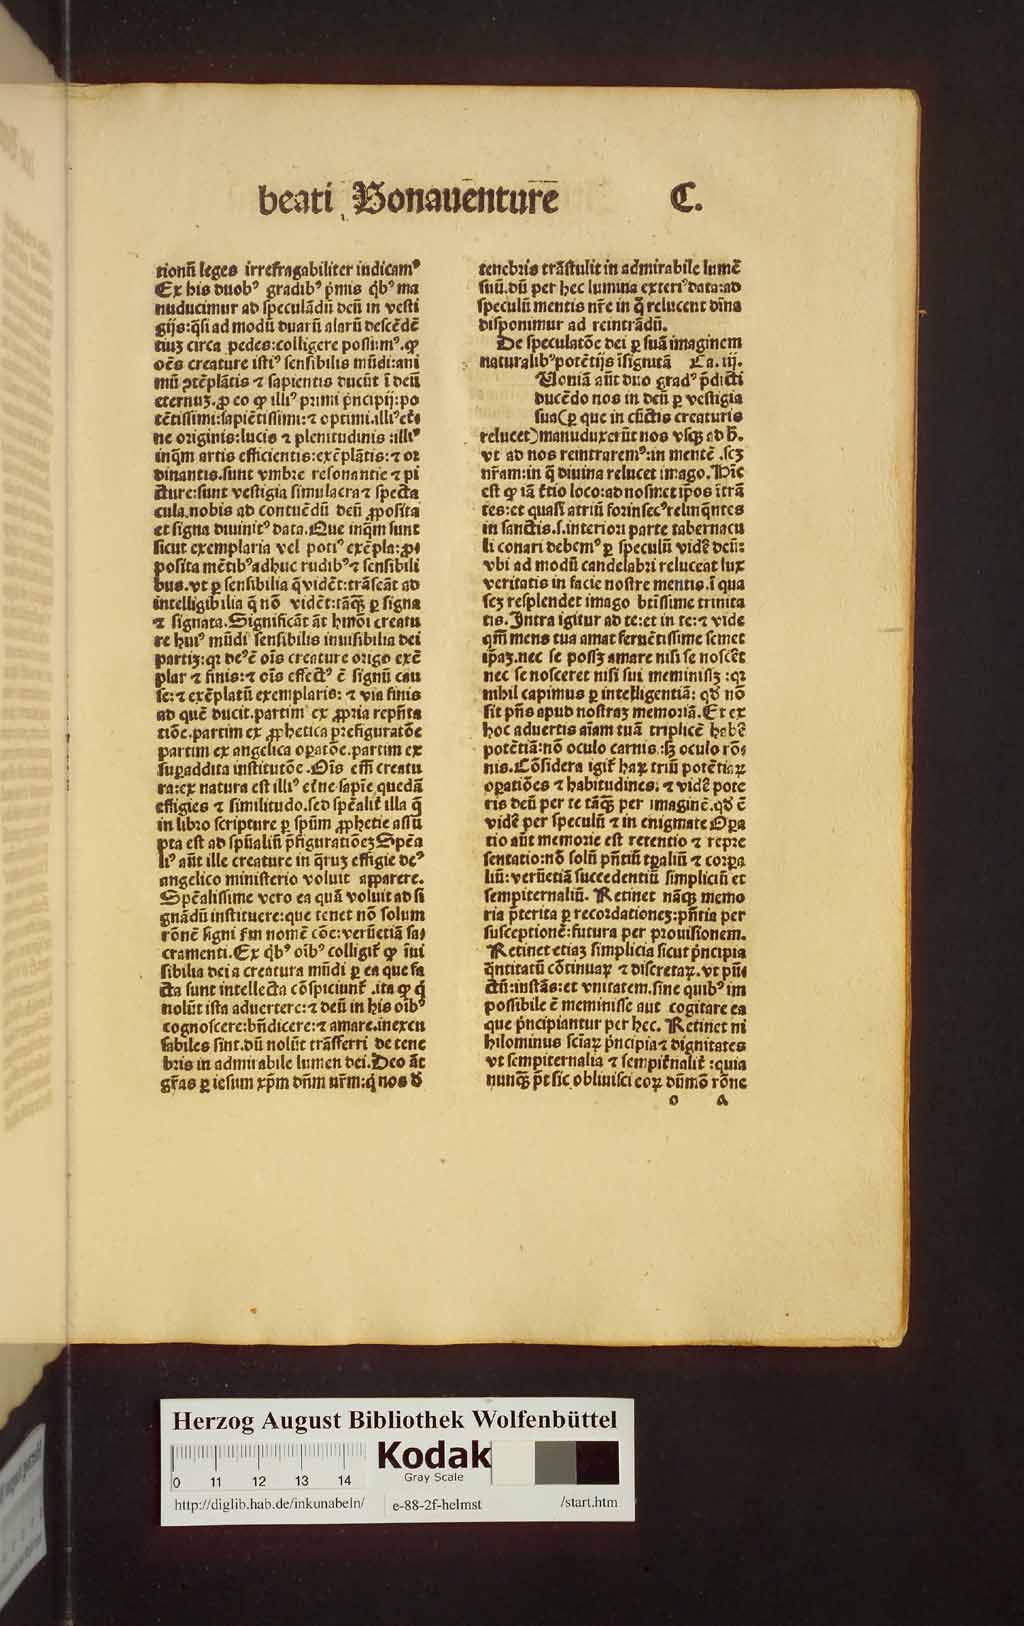 beati Bonauētur̄e C.
tionū leges irrefragabiliter indicamꝰ
Ex his duobꝰ gradibꝰ p̄mis q̄bꝰ ma
nuducimur ad speculādū deū in vesti
gijs: q̄si ad modū duarū alarū descēdē
tiuꝫ circa pedes: colligere possumꝰ. ꝙ
oēs creature istiꝰ sensibilis mūdi: ani
mū ꝯtēplātis ⁊ sapientis ducūt ī deū
eternuꝫ. ꝓ eo ꝙ illiꝰ primi p̄ncipij: po
tētissimi: sapiētissimi: ⁊ optimi. illiꝰ et̄
ne originis: lucis ⁊ plenitudinis: illiꝰ
inq̄m artis efficientis: exēplātis: ⁊ or
dinantis. sunt vmbre resonantie ⁊ pi
cture: sunt vestigia simulacra ⁊ specta
cula. nobis ad contuēdū deū ꝓposita
et signa diuinitꝰ data. Que inq̄m sunt
sicut exemplaria vel potiꝰ exēpla: ꝓ
posita mētibꝰ adhuc rudibꝰ ⁊ sensibili
bus. vt ꝑ sensibilia q̄ vidēt: trāseāt ad
intelligibilia q̄ nō vidēt: tāq̄ꝫ ꝑ signa
⁊ signata. Significāt āt hmōi creatu
re huiꝰ mūdi sensibilis inuisibilia dei
partiꝫ: qꝛ deꝰ ē oīs creature origo exē
plar ⁊ finis: ⁊ oīs effectꝰ ē signū cau
se: ⁊ exēplatū exemplaris: ⁊ via finis
ad quē ducit. partim ex ꝓpria rep̄nta
tiōe. partim ex ꝓphetica prefiguratōe
partim ex angelica oꝑatōe. partim ex
suꝑaddita institutōe. Oīs em̄ creatu
ra: ex natura est illiꝰ et̄ne sapiē quedā
effigies ⁊ similitudo. sed spēalit̄ illa q̄
in libro scripture ꝑ spūm ꝓphetie assū
pta est ad spūaliū p̄figuratiōeꝫ Spēa
liꝰ aūt ille creature in q̄ruꝫ effigie deꝰ
angelico ministerio voluit apparere.
Spēalissime vero ea quā voluit ad si
gnādū instituere: que tenet nō solum
rōnē signi ẜm nomē cōe: verūetiā sa
cramenti. Ex q̄bꝰ oībꝰ colligit̄ ꝙ īuī
sibilia dei a creatura mūdi ꝑ ea que fa
cta sunt intellecta cōspiciunt̄. ita ꝙ q̄
nolūt ista aduertere: ⁊ deū in his oībꝰ
cognoscere: bn̄dicere: ⁊ amare. inexcu
sabiles sint. dū nolūt trāsferri de tene
bris in admirabile lumen dei. Deo āt
gr̄as ꝑ iesum xp̄m dn̄m nr̄m: q̄ nos d̄
tenebris trāstulit in admirabile lumē
suū. dū per hec lumina exteriꝰ data: ad
speculū mentis nr̄e in q̄ relucent dīna
disponimur ad reintrādū.
De speculatōe dei ꝑ suā imaginem
naturalibꝰ potētijs īsignitā Ca. iij.
Uoniā aūt duo gradꝰ p̄dicti
ducēdo nos in deū ꝑ vestigia
sua (ꝑ que in cūctis creaturis
relucet) manuduxerūt nos vsqꝫ ad h̄.
vt ad nos reintraremꝰ: in mentē .scꝫ
nr̄am: in q̄ diuina relucet imago. Hīc
est ꝙ iā t̄tio loco: ad nosmet ip̄os ītrā
tes: et quasī atriū forinsecꝰ relinq̄ntes
in sanctis. s. interiori parte tabernacu
li conari debemꝰ ꝑ speculū vidē deū:
vbi ad modū candelabri reluceat lux
veritatis in facie nostre mentis. ī qua
scꝫ resplendet imago btīssime trinita
tis. Intra igitur ad te: et in te: ⁊ vide
qm̄ mens tua amat feruētissime semet
ip̄aꝫ. nec se possꝫ amare nisi se noscēt
nec se nosceret nisi sui meminisꝫ: qꝛ
nihil capimus ꝑ intelligentiā: qd̄ nō
sit pn̄s apud nostraꝫ memoriā. Et ex
hoc aduertis aīam tuā triplicē habē
potētiā: nō oculo carnis: sꝫ oculo rōi
nis. Cōsidera igit̄ haꝝ triū potētiaꝝ
oꝑatiōes ⁊ habitudines: ⁊ vidē pote
ris deū per te tāq̄ꝫ per imaginē. qd̄ ē
vidē per speculū ⁊ in enigmate Oꝑa
tio aūt memorie est retentio ⁊ repre
sentatio: nō solū pn̄tiū tꝑaliū ⁊ corpa
liū: verūetiā succedentiū simpliciū et
sempiternaliū. Retinet nāqꝫ memo
ria p̄terita ꝑ recordationeꝫ: pn̄tia per
susceptionē: futura per prouisionem.
Retinet etiaꝫ simplicia sicut p̄ncipia
q̄ntitatū cōtinuaꝝ ⁊ discretaꝝ. vt pū
ctū: instās: et vnitatem. sine quibꝰ im
possibile ē meminisse aut cogitare ea
que p̄ncipiantur per hec. Retinet ni
hilominus sciaꝝ p̄ncipia ⁊ dignitates
vt sempiternalia ⁊ sempit̄nalit̄: quia
nunq̄ꝫ p̄t sic obliuisci eoꝝ dūmō rōne
o a
Herzog August Bibliothek Wolfenbüttel
0 11 12 13 14
Kodak
Gray Scale
http://diglib.hab.de/inkunabeln/ e-88-2f-helmst /start.htm